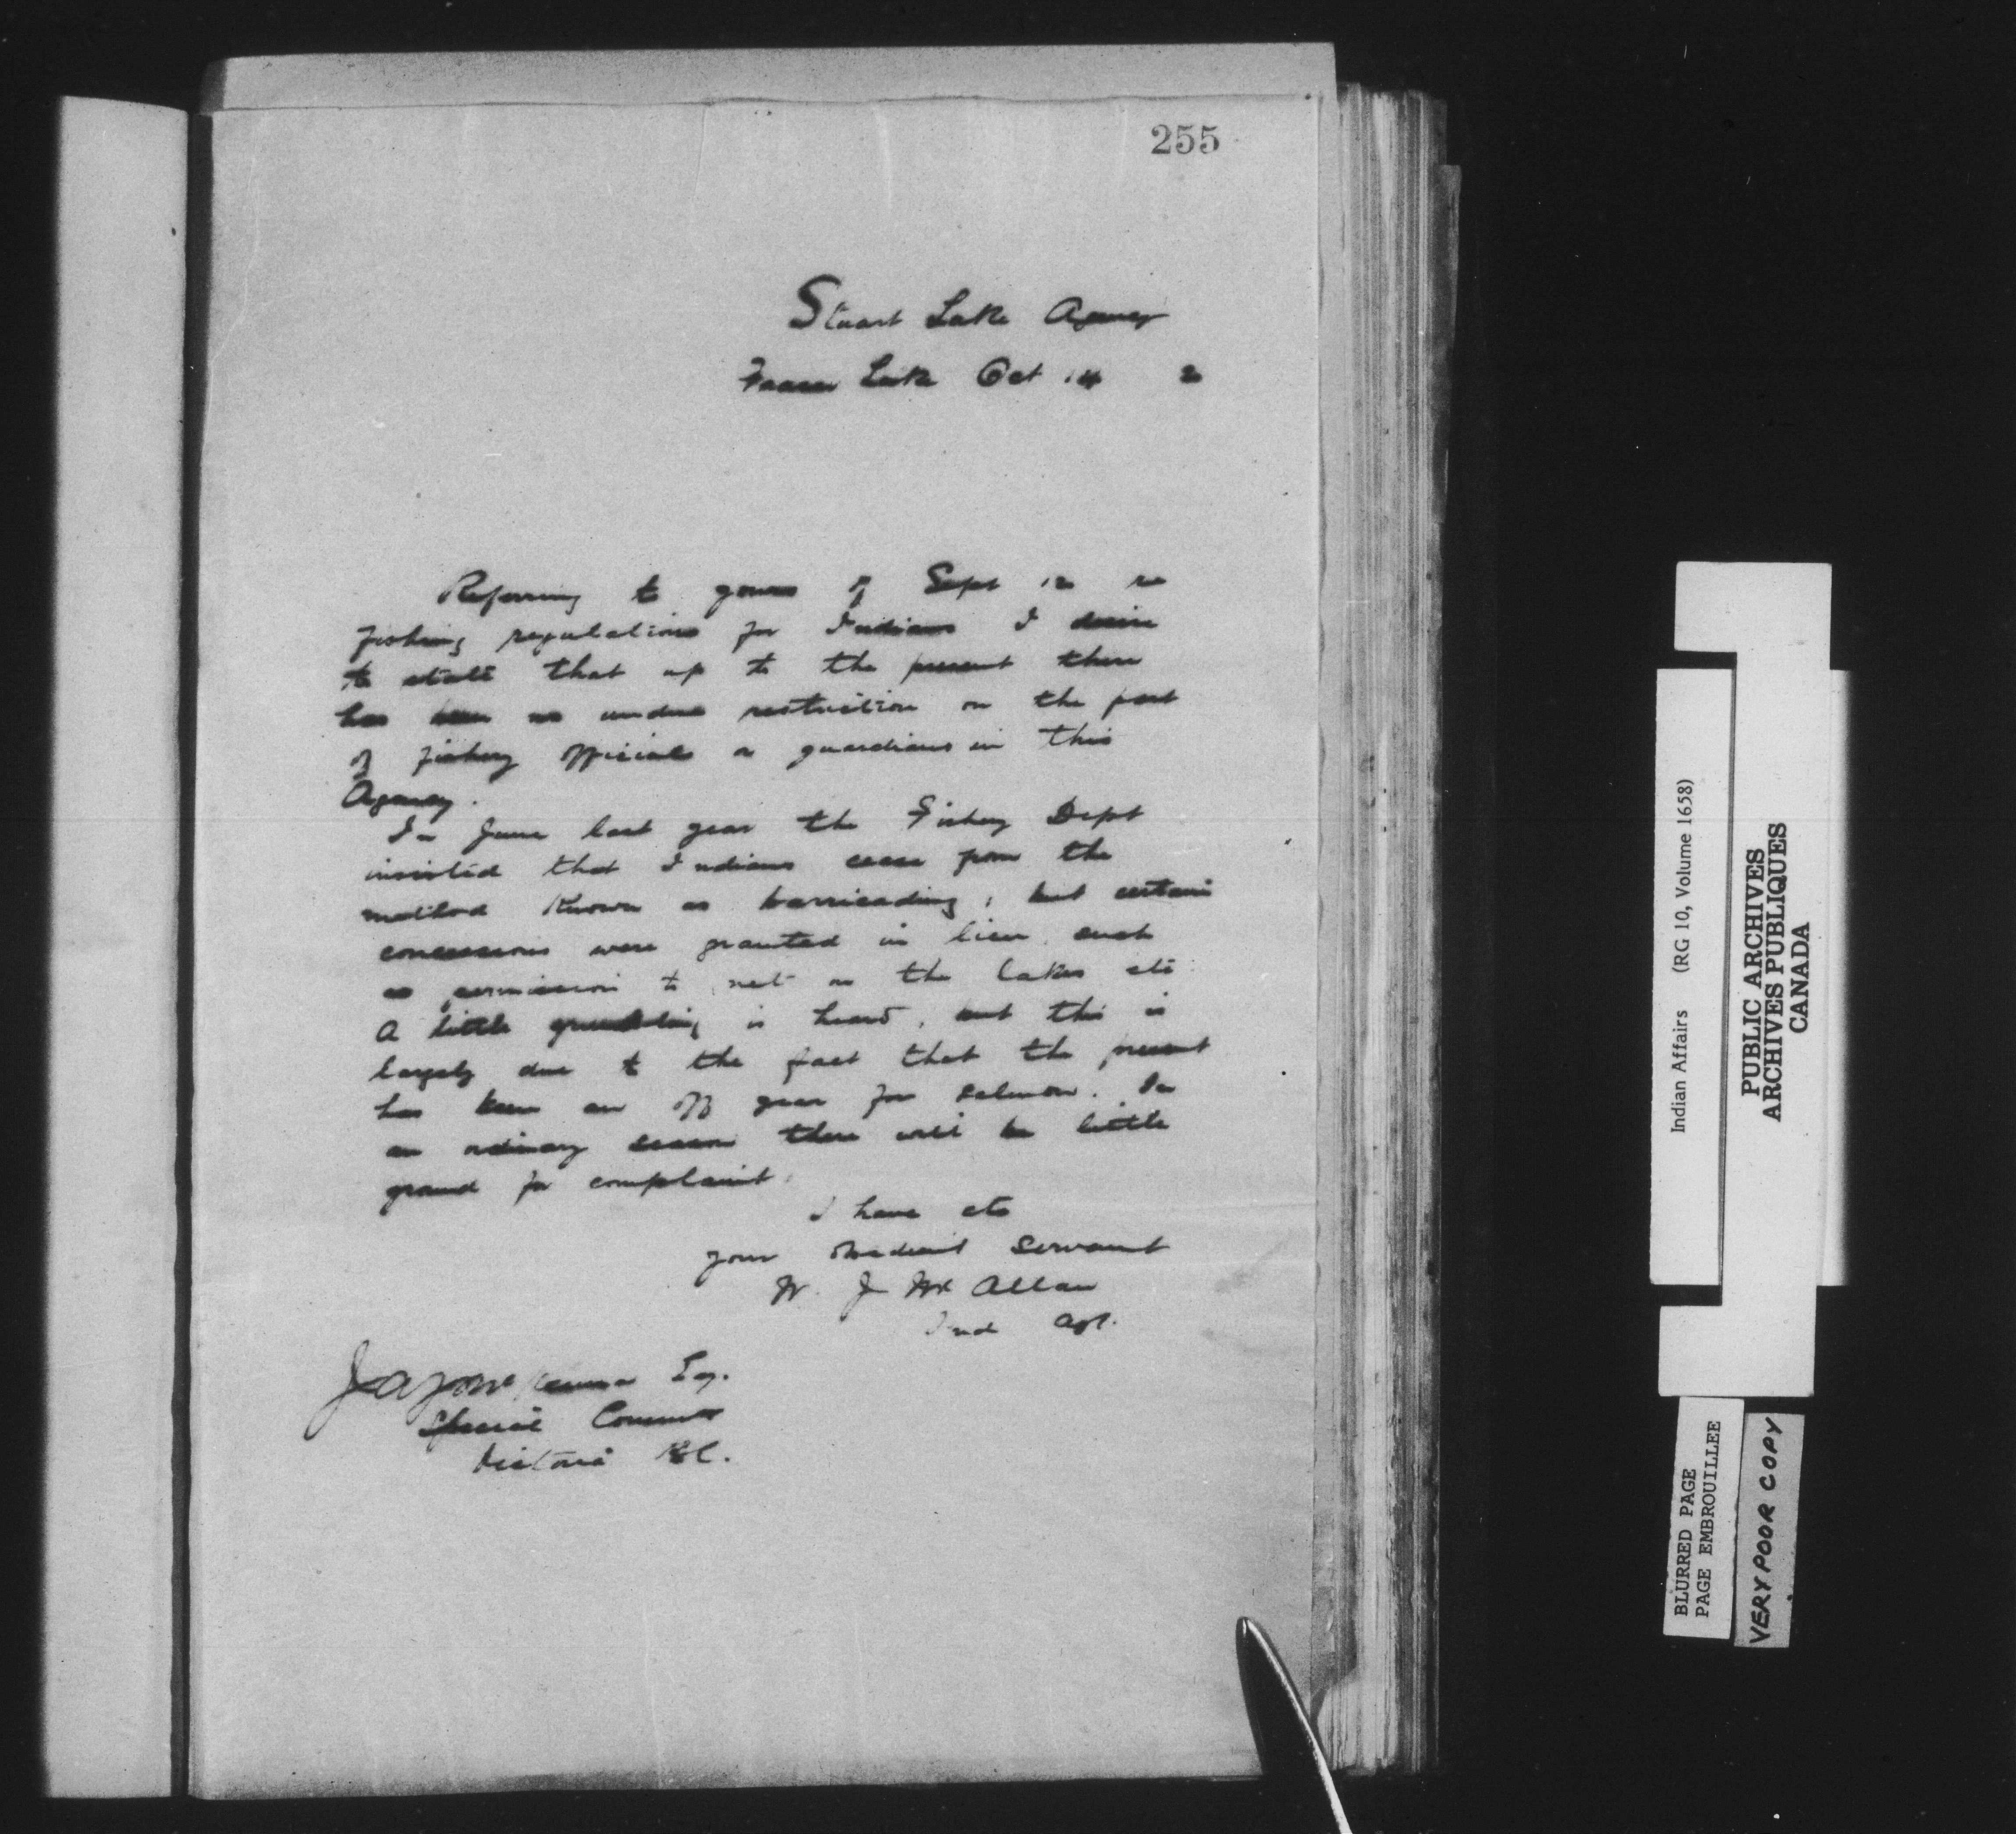 255
Stuart Lake Agency
Fraser Lake Oct 14 2
Referring to yours of Sept 12 re
fishing regulations for Indians I desire
to state that up to the present there
has been no undue restriction on the part
of fishery officials or guardians in this
Agency.
In June last year the Fishery Dept
insisted that Indians cease from the
method known as barricading; but certain
concessions were granted in lieu, such
as permission to net in the lakes etc.
A little grumbling is heard, but this is
largely due to the fact that the present
has been an off year for salmon. In
an ordinary season there will be little
ground for complaint.
I have etc
your obedient servant
W. J. McAllan
Ind Agt.
J A J McKenna Esq.
Special Commr
Victoria B.C.
Indian Affairs (RG 10, Volume 1658)
PUBLIC ARCHIVES
ARCHIVES PUBLIQUES
CANADA
BLURRED PAGE
PAGE EMBROUILLEE
VERY POOR COPY